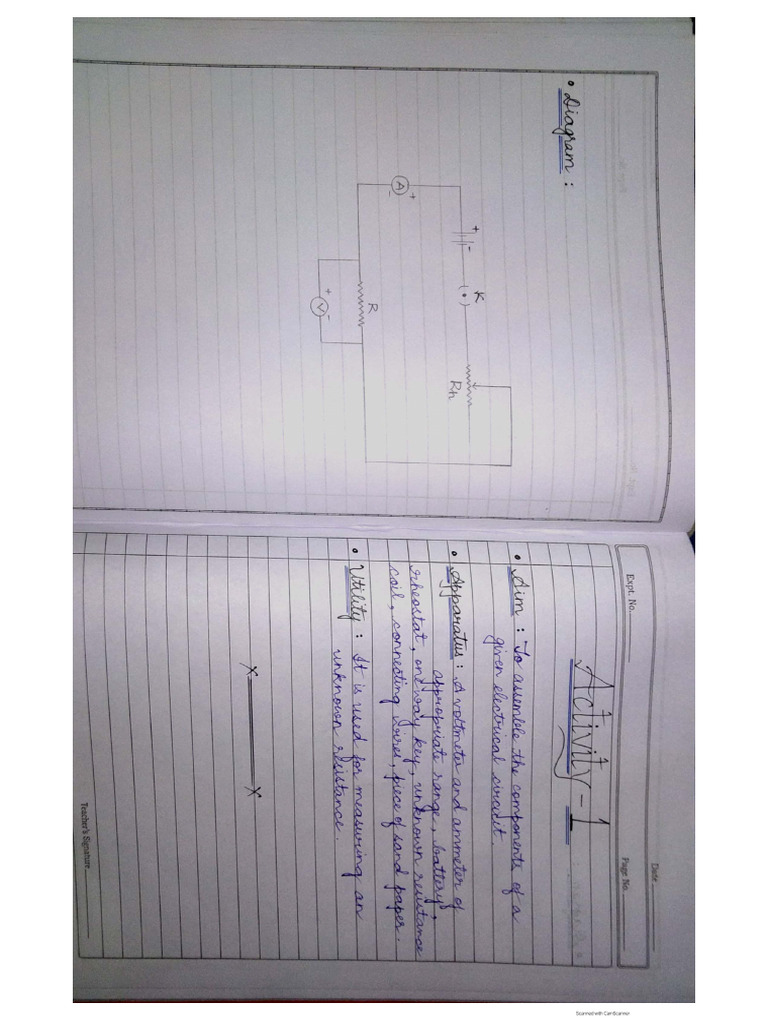 • Diagram :
K
+
-
Rh
+
A
-
R
+
V
-
Date
Expt. No.
Page No.
Activity-1
• Aim : To assemble the components of a
given electrical circuit
• Apparatus : A voltmeter and ammeter of
appropriate range, battery,
rheostat, one way key, unknown resistance
coil, connecting wires, piece of sand paper.
• Utility : It is used for measuring an
unknown resistance.
X X
Teacher's Signature
Scanned with CamScanner